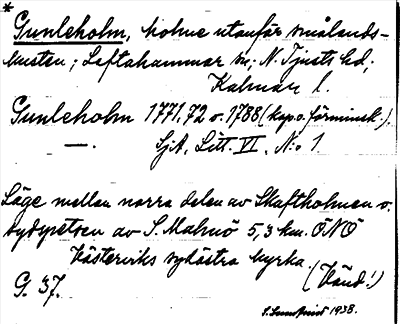 *
Gunleholm, holme utanför smålands-
kusten; Loftahammar sn; N. Tjusts hd;
Kalmar l.
Gunleholm 1771.72 o. 1788 (kop. o. förminsk.).
—. SjA, Litt. VI, N:o 1.
Läge mellan norra delen av Skaftholmen o.
sydspetsen av S. Malmö 5,3 km. ÖNÖ
Västerviks sydöstra kyrka.
(Vänd!)
G. 37.
1938.